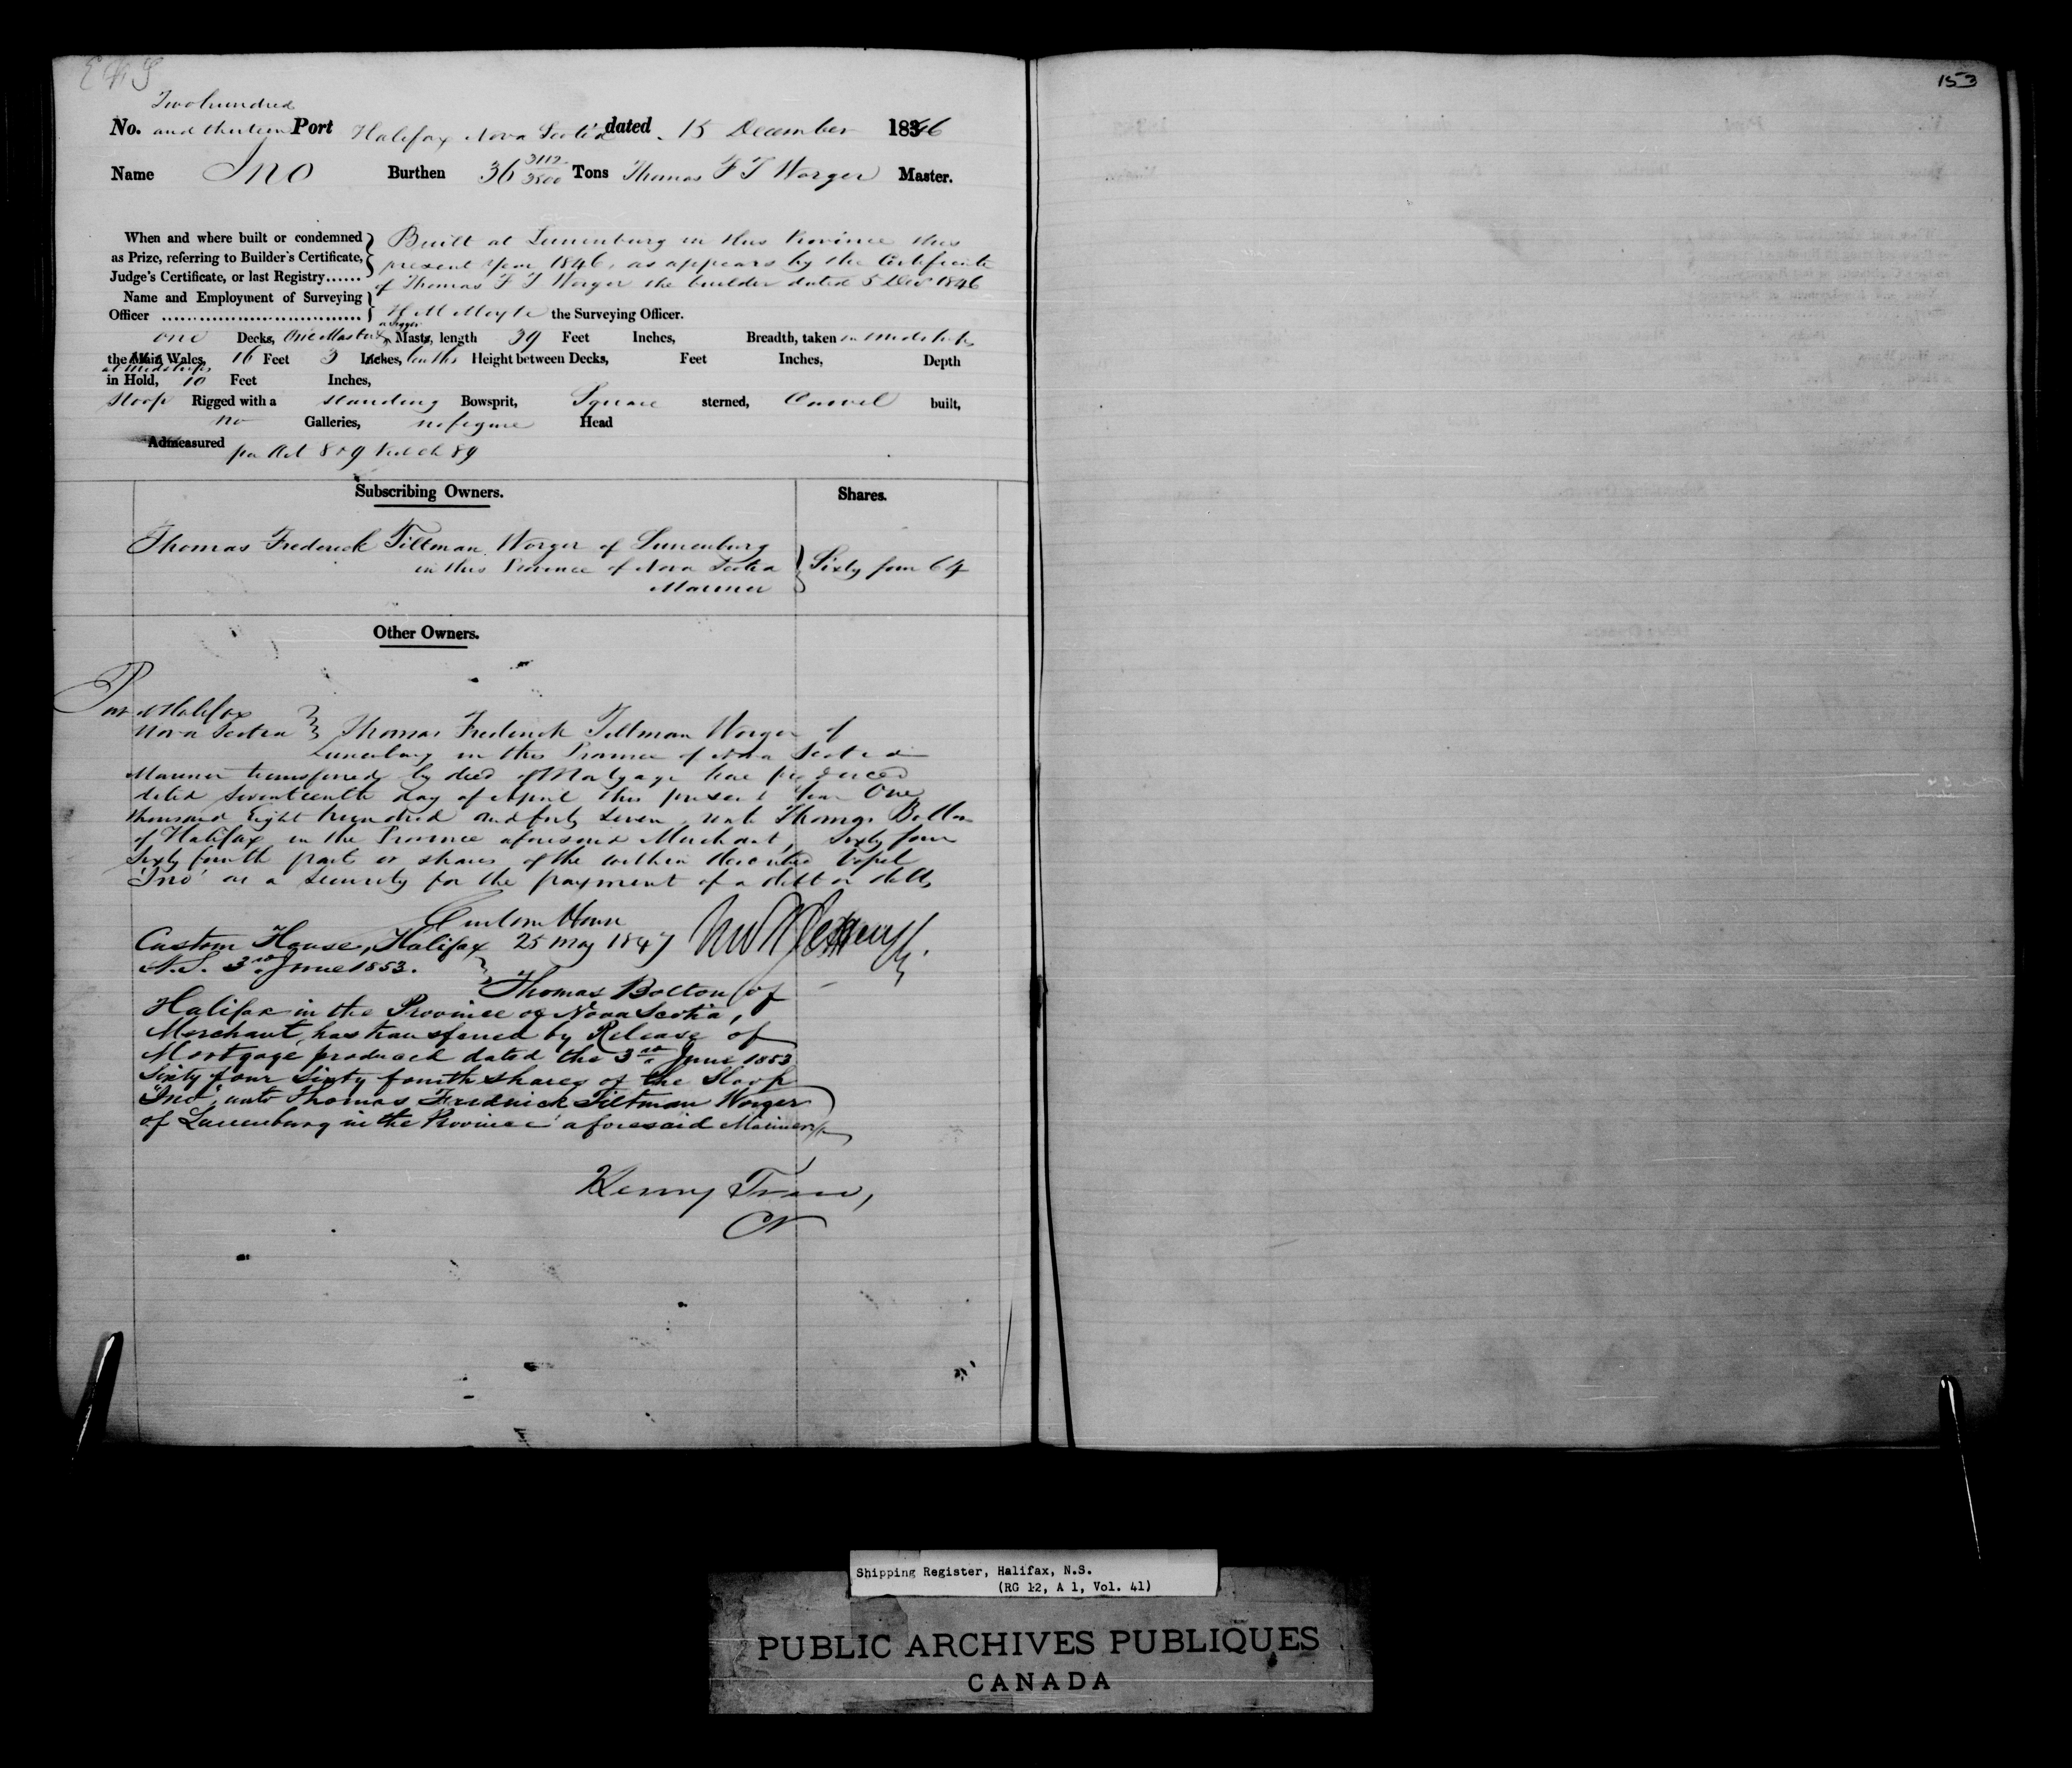 153
Two hundred
No. and thirteen Port Halifax Nova Scotia dated 15 December 1846
Name Ino Burthen 36 3112/3500 Tons Thomas F T Worger Master.
When and where built or condemned as Prize, referring to Builder's Certificate, Judge's Certificate, or last Registry......
Built at Lunenburg in this Province this
present Year 1846, as appears by the Certificate
of Thomas F T Worger the builder dated 5 Decr 1846
Name and Employment of Surveying
Officer ................................ the Surveying Officer.
one Decks, One Mast & a Jigger Masts, length 39 Feet Inches, Breadth, taken in midships
the Main Wales, 16 Feet 3 Inches, tenths Height between Decks, Feet Inches, Depth
at midships
in Hold, 10 Feet Inches,
Sloop Rigged with a standing Bowsprit, Square sterned, Carvel built,
no Galleries, no figure Head
Admeasured per Act 8 & 9 Vict Ch 89
Subscribing Owners. Shares.
Thomas Frederick Tiltman Worger of Lunenburg
in this Province of Nova Scotia Sixty four 64
Mariner
Other Owners.
Port of Halifax
Nova Scotia Thomas Frederick Tiltman Worger of
Lunenburg in this Province of Nova Scotia
Mariner transferred by deed of Mortgage here produced
dated seventeenth day of April this present Year One
thousand Eight hundred and forty seven, unto Thomas Bolton
of Halifax in the Province aforesaid Merchant, sixty four
Sixty fourth parts or shares of the within described Vessel
'Ino' as a security for the payment of a debt or debts
Custom House
25 May 1847
Custom House, Halifax
N.S. 3rd June 1853.
Thomas Bolton of
Halifax in the Province of Nova Scotia,
Merchant, has transferred by Release of
Mortgage produced dated the 3rd June 1853
Sixty four Sixty fourth shares of the Sloop
"Ino", unto Thomas Fredrick Tiltman Worger
of Lunenburg in the Province aforesaid Mariner
Shipping Register, Halifax, N.S.
(RG 12, A 1, Vol. 41)
PUBLIC ARCHIVES PUBLIQUES
CANADA